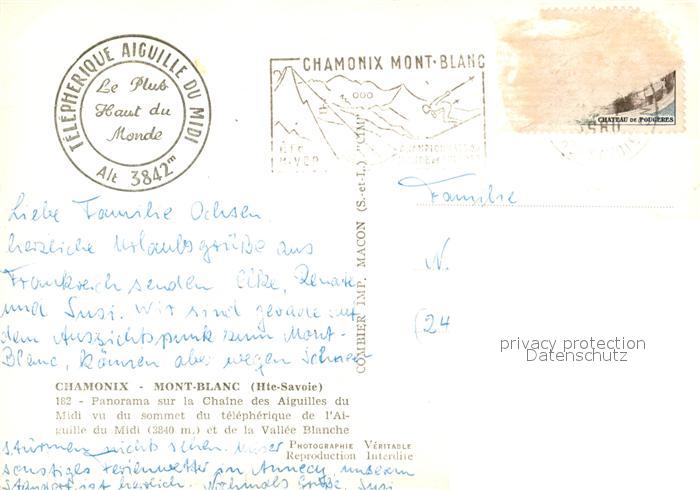 TÉLÉPHÉRIQUE AIGUILLE DU MIDI
Le Plus
Haut du
Monde
Alt 3842m
CHAMONIX MONT-BLANC
ÉTÉ
HIVER
CHATEAU DE FOUGERES
Liebe Familie Ochsen
herzliche Urlaubsgrüße aus
Frankreich senden Elke, Renate
und Susi. Wir sind gerade auf
dem Aussichtspunkt zum Mont-
Blanc, können aber wegen Schnee-
CHAMONIX - MONT-BLANC (Hte-Savoie)
182 - Panorama sur la Chaîne des Aiguilles du
Midi vu du sommet du téléphérique de l'Ai-
guille du Midi (3840 m.) et de la Vallée Blanche
PHOTOGRAPHIE VÉRITABLE
Reproduction Interdite
stürmen nichts sehen. Unser
sonstiges Ferienwetter in Annecy, unserem
Standort ist herrlich. Nochmals Grüße, Susi
COMBIER IMP. MACON (S.-et-L.) "CIM"
Familie
N.
(24
privacy protection
Datenschutz